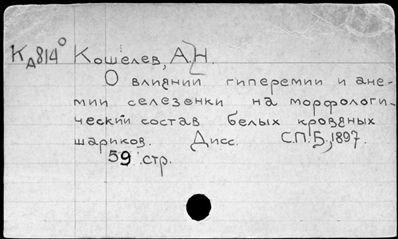 КД 814° Кошелев, А.Н.
О влиянии гиперемии и ане-
мии селезенки на морфологи-
ческий состав белых кровяных
шариков. Дисс. С.П.Б, 1897.
59 стр.